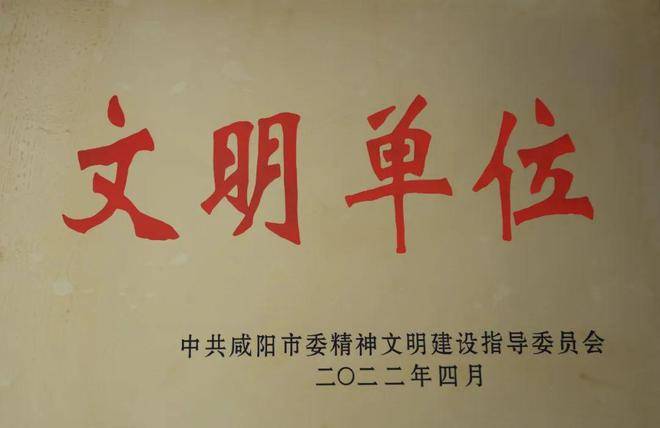 文明单位
中共咸阳市委精神文明建设指导委员会
二〇二二年四月